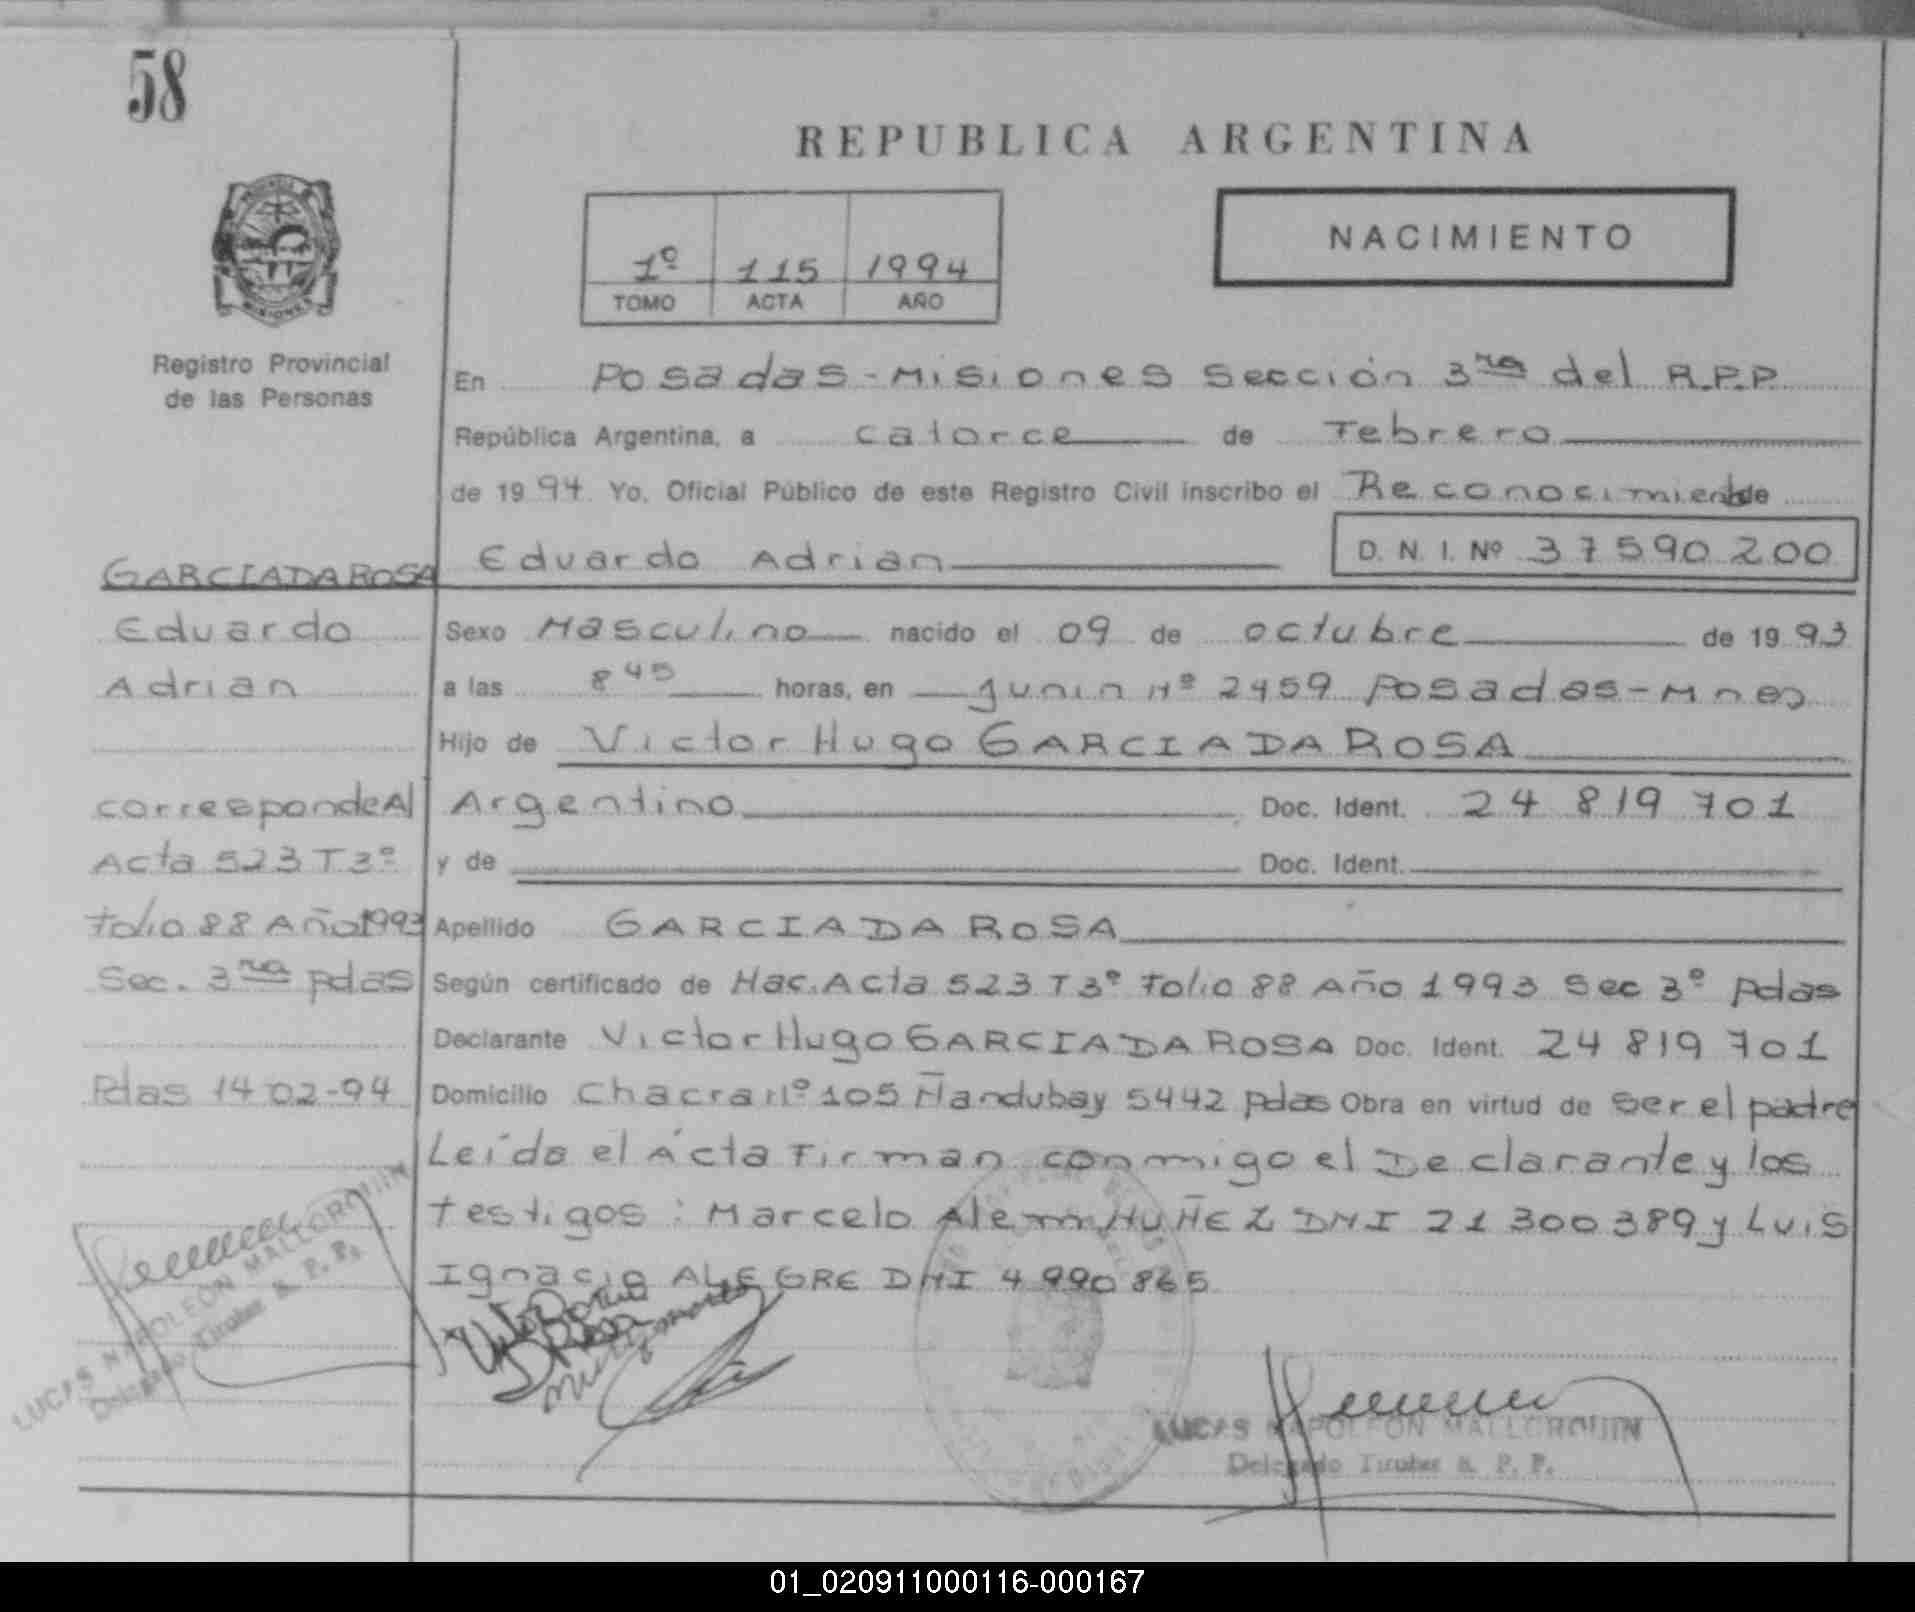 58
REPUBLICA ARGENTINA
1º 115 1994
TOMO ACTA AÑO
NACIMIENTO
Registro Provincial
de las Personas
En Posadas - Misiones Sección 3ra del R.P.P.
República Argentina, a catorce de Febrero
de 1994 Yo, Oficial Público de este Registro Civil inscribo el Reconocimiento de
Eduardo Adrian D. N. I. Nº 37590200
GARCIA DA ROSA
Eduardo
Adrian
corresponde Al
Acta 523 T 3º
Folio 88 Año 1993
Sec. 3ra pdas
Pdas 14 02-94
Sexo Masculino nacido el 09 de octubre de 1993
a las 8 45 horas, en Junin Nº 2459 Posadas - Mnes
Hijo de Victor Hugo GARCIA DA ROSA
Argentino Doc. Ident. 24 819 701
y de Doc. Ident.
Apellido GARCIA DA ROSA
Según certificado de Nac. Acta 523 T 3º Folio 88 Año 1993 Sec 3º pdas
Declarante Victor Hugo GARCIA DA ROSA Doc. Ident. 24 819 701
Domicilio Chacra Nº 105 Ñandubay 5442 pdas Obra en virtud de ser el padre
Leída el Acta Firman conmigo el Declarante y los
testigos: Marcelo NUÑEZ DNI 21 300 389 y Luis
Ignacio ALEGRE DNI 4 990 865
LUCAS NAPOLEON MALLORQUIN
Delegado Titular R. P. P.
LUCAS NAPOLEON MALLORQUIN
Delegado Titular R. P. P.
01_020911000116-000167